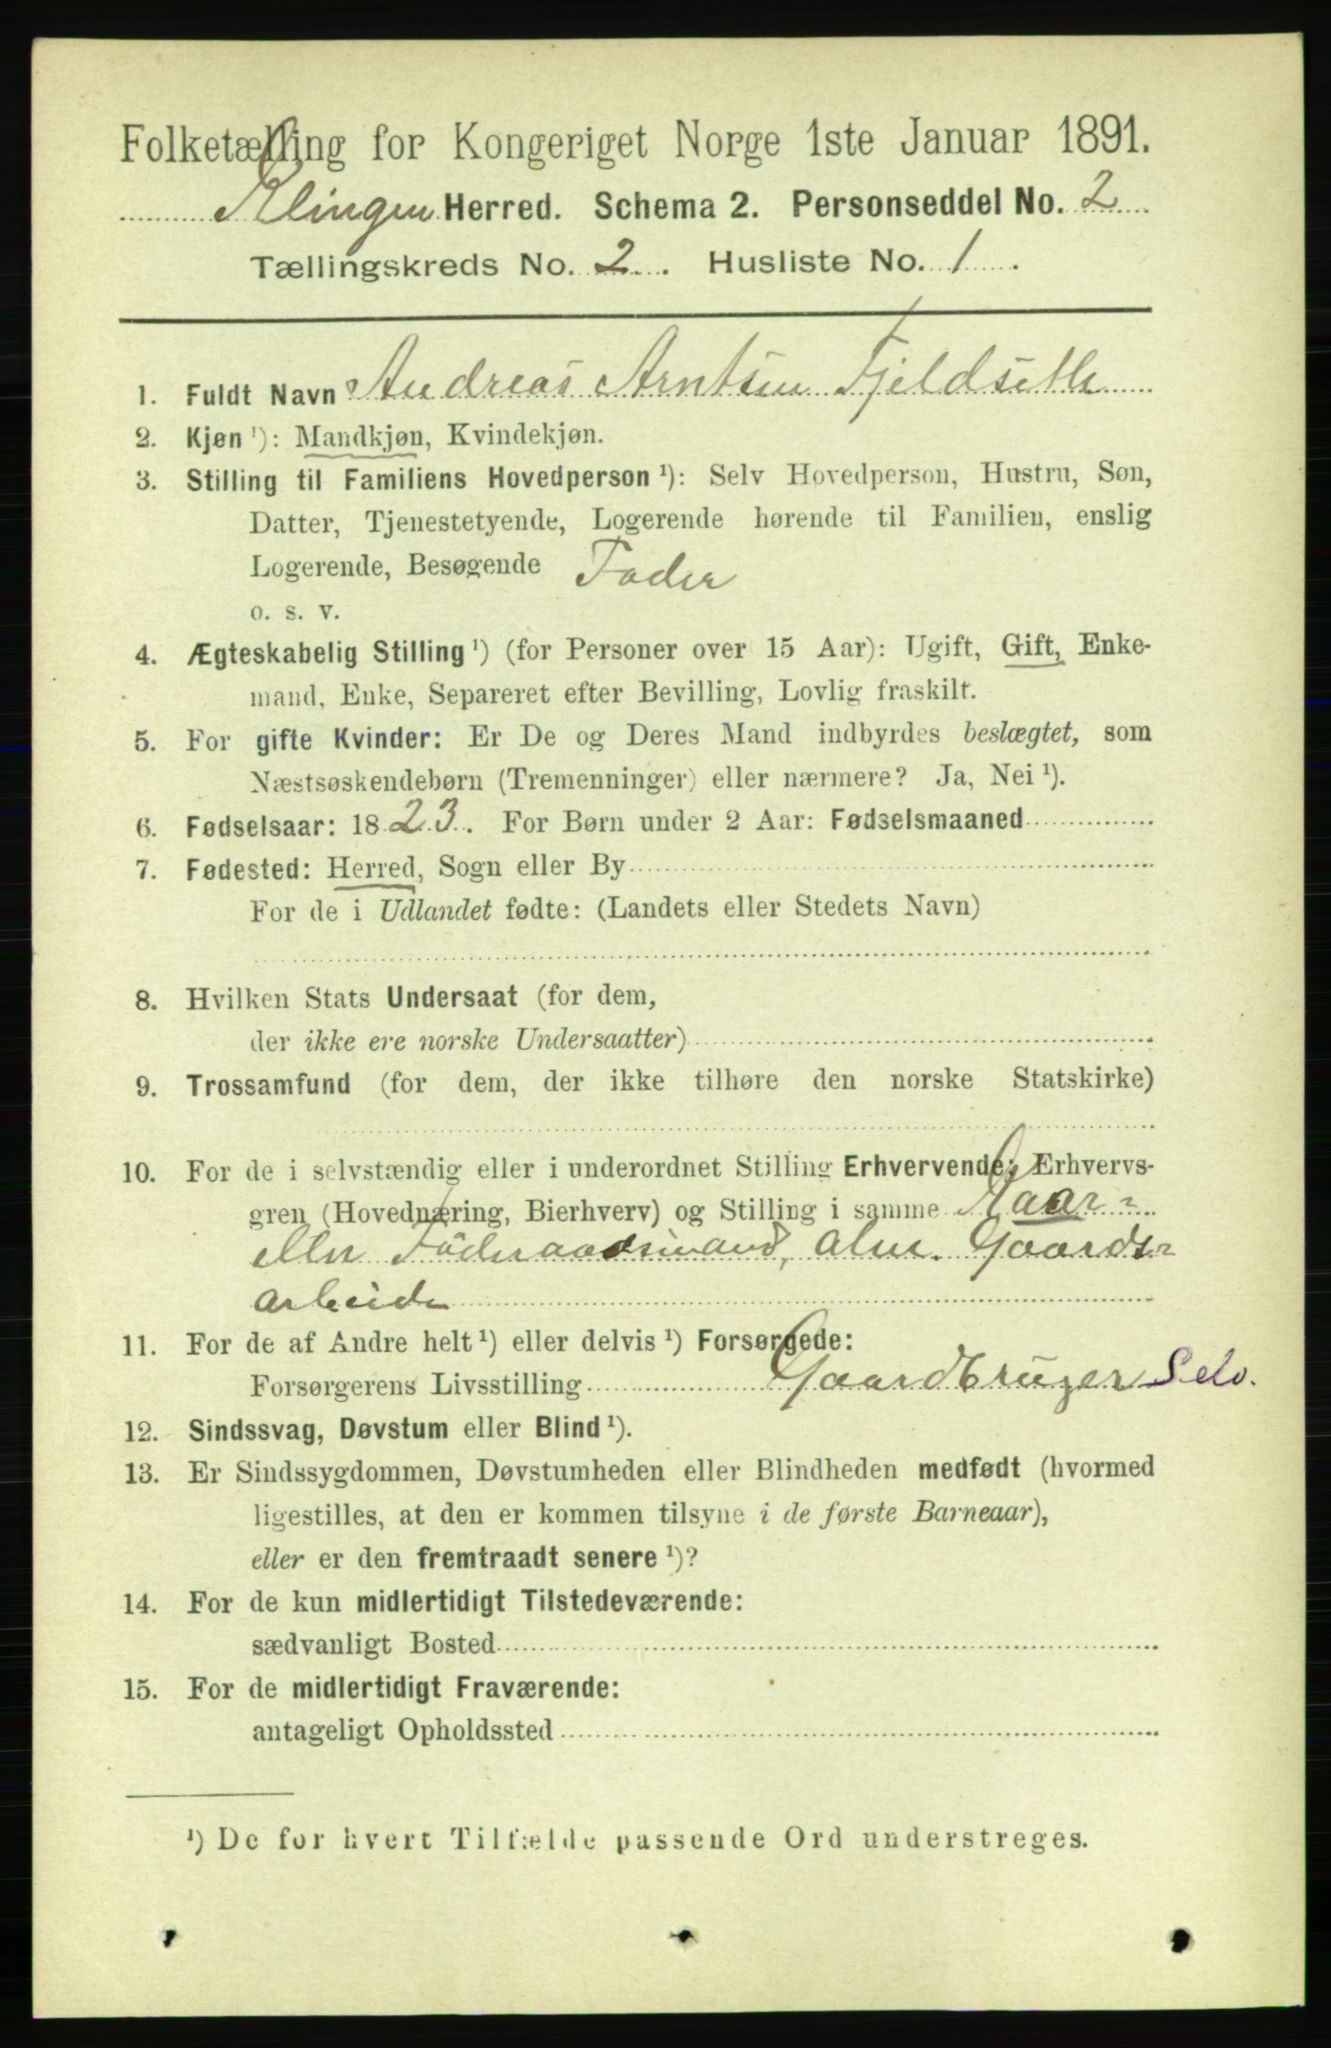 Folketælling for Kongeriget Norge 1ste Januar 1891.
Klingen Herred. Schema 2. Personseddel No. 2
Tællingskreds No. 2. Husliste No. 1.
1. Fuldt Navn Andreas Arntsen Fjeldseth
2. Kjøn ¹): Mandkjøn, Kvindekjøn.
3. Stilling til Familiens Hovedperson ¹): Selv Hovedperson, Hustru, Søn,
Datter, Tjenestetyende, Logerende hørende til Familien, enslig
Logerende, Besøgende Fader
o. s. v.
4. Ægteskabelig Stilling ¹) (for Personer over 15 Aar): Ugift, Gift, Enke-
mand, Enke, Separeret efter Bevilling, Lovlig fraskilt.
5. For gifte Kvinder: Er De og Deres Mand indbyrdes beslægtet, som
Næstsøskendebørn (Tremenninger) eller nærmere? Ja, Nei ¹).
6. Fødselsaar: 1823. For Børn under 2 Aar: Fødselsmaaned
7. Fødested: Herred, Sogn eller By
For de i Udlandet fødte: (Landets eller Stedets Navn)
8. Hvilken Stats Undersaat (for dem,
der ikke ere norske Undersaatter)
9. Trossamfund (for dem, der ikke tilhøre den norske Statskirke)
10. For de i selvstændig eller i underordnet Stilling Erhvervende: Erhvervs-
gren (Hovednæring, Bierhverv) og Stilling i samme Kaar-
eller Föderaadsmand, alm. Gaards-
arbeide
11. For de af Andre helt ¹) eller delvis ¹) Forsørgede:
Forsørgerens Livsstilling Gaardbruger Selv.
12. Sindssvag, Døvstum eller Blind ¹).
13. Er Sindssygdommen, Døvstumheden eller Blindheden medfødt (hvormed
ligestilles, at den er kommen tilsyne i de første Barneaar),
eller er den fremtraadt senere ¹)?
14. For de kun midlertidigt Tilstedeværende:
sædvanligt Bosted
15. For de midlertidigt Fraværende:
antageligt Opholdssted
¹) De for hvert Tilfælde passende Ord understreges.